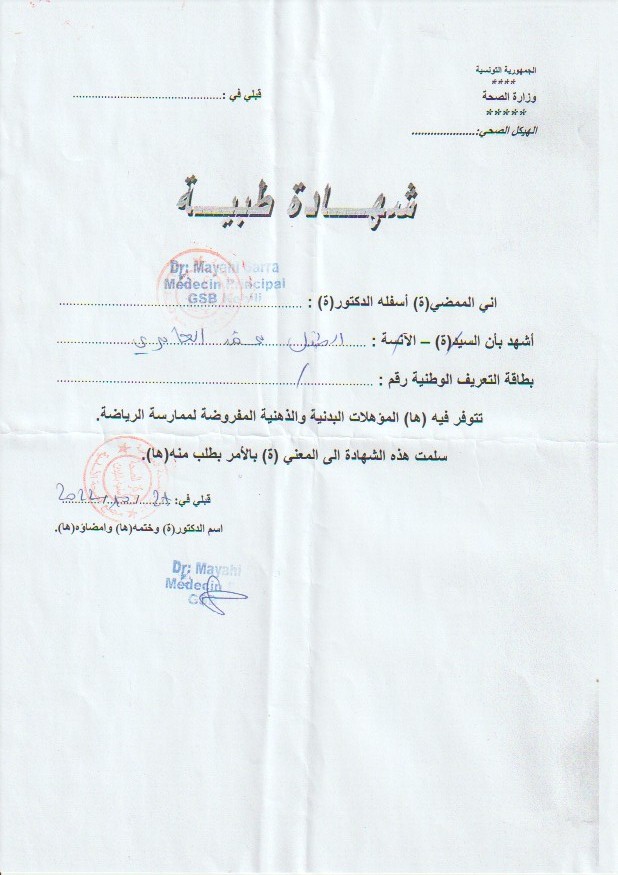 الجمهورية التونسية
****
وزارة الصحة
*****
الهيكل الصحي:....................
قبلي في :..........................................
شهـــادة طبيـــة
Dr: Mayahi Sarra
Médecin Principal
GSB Kebili
اني الممضي(ة) أسفله الدكتور(ة) : ..........................................
أشهد بأن السيد(ة) – الآنسة : الطفل محمد العامري
بطاقة التعريف الوطنية رقم : /
تتوفر فيه (ها) المؤهلات البدنية والذهنية المفروضة لممارسة الرياضة.
سلمت هذه الشهادة الى المعني (ة) بالأمر بطلب منه(ها).
قبلي في: 2022
اسم الدكتور(ة) وختمه(ها) وامضاؤه(ها).
Dr: Mayahi
Médecin